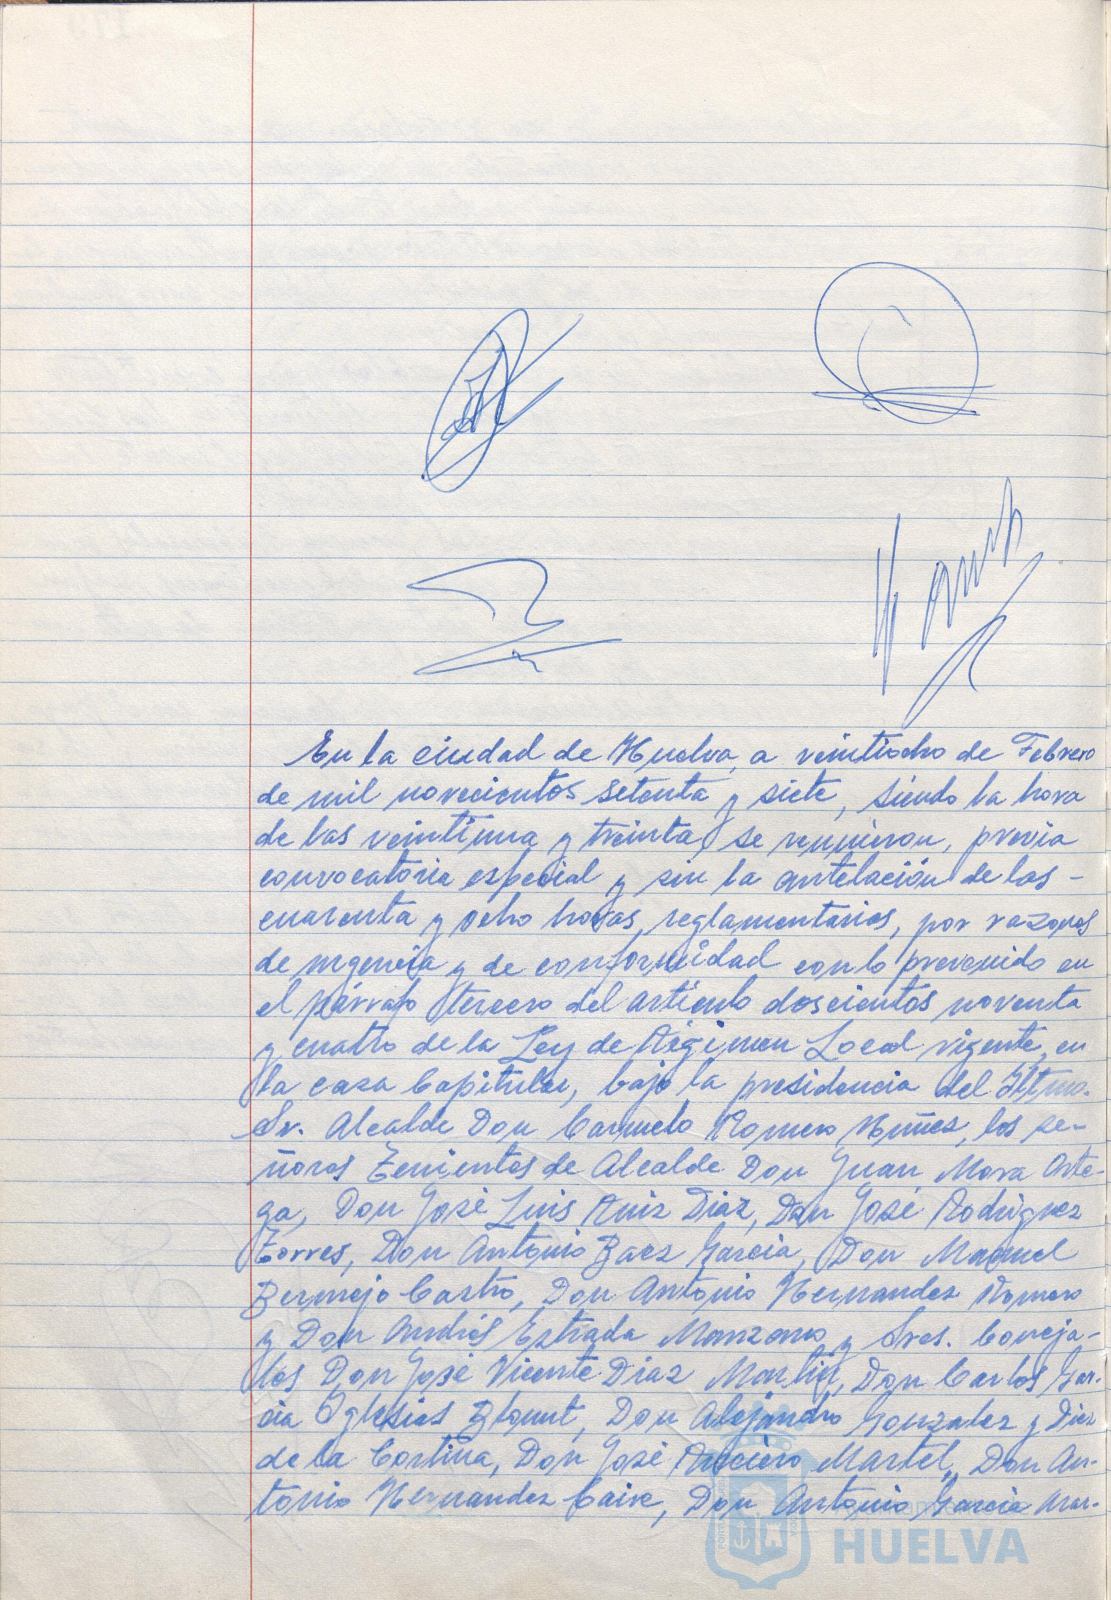 En la ciudad de Huelva, a veintiocho de Febrero
de mil novecientos setenta y siete, siendo la hora
de las veintiuna y treinta, se reunieron, previa
convocatoria especial y sin la antelación de las -
cuarenta y ocho horas, reglamentarias, por razones
de urgencia y de conformidad con lo prevenido en
el párrafo tercero del artículo doscientos noventa
y cuatro de la Ley de Régimen Local vigente, en
la casa Capitular, bajo la presidencia del Iltmo.
Sr. Alcalde Don Carmelo Romero Núñez, los se-
ñores Tenientes de Alcalde Don Juan Mora Orte-
ga, Don José Luis Ruiz Diaz, Don José Rodriguez
Torres, Don Antonio Baez Garcia, Don Manuel
Bermejo Castro, Don Antonio Hernandez Romero
y Don Andrés Estrada Manzano y Sres. Conceja-
les Don José Vicente Diaz Martin, Don Carlos Gar-
cia Iglesias Blount, Don Alejandro Gonzalez y Diez
de la Cortina, Don José Martel, Don An-
tonio Hernandez Caire, Don Antonio Garcia
HUELVA